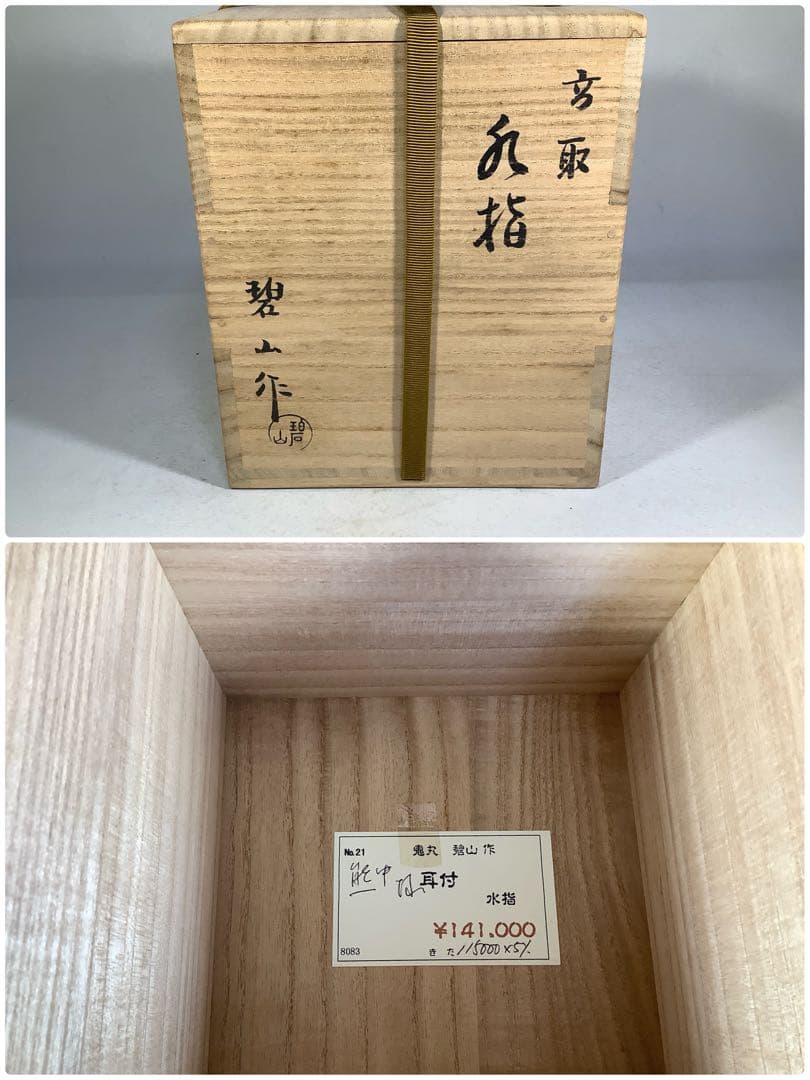 高取
水指
碧山作
碧山
No.21 鬼丸 碧山 作
耳付
水指
¥141,000
8083 きた 115000×5%